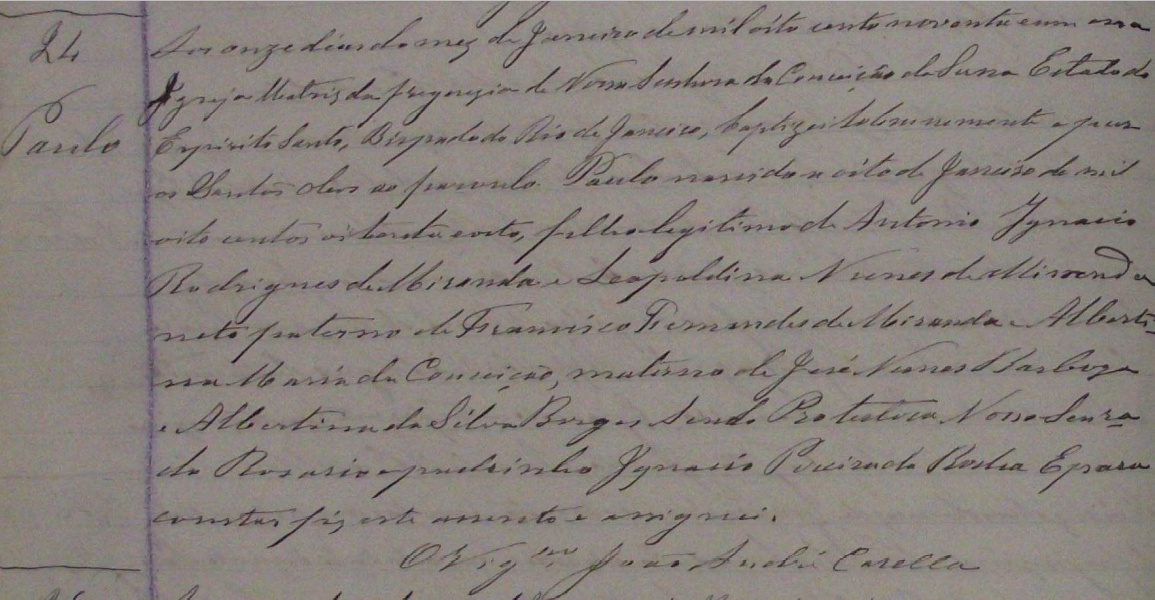 24
Paulo
Aos onze dias do mez de Janeiro de mil oito cento noventa e um na
Igreja Matriz da freguezia de Nossa Senhora da Conceição da Serra Estado do
Espirito Santo, Bispado do Rio de Janeiro, baptizei solemnemente e puz
os Santos oleos ao parvulo Paulo nascido a oito de Janeiro de mil
oito centos oitenta e oito, filho legitimo de Antonio Ignacio
Rodrigues de Miranda e Leopoldina Nunes de Miranda
neto paterno de Francisco Fernandes de Miranda e Alberti-
na Maria da Conceição, materno de José Nunes Barboza
e Albertina da Silva Borges sendo Protectora Nossa Senra
do Rosario e padrinho Ignacio Pereira da Rocha E para
constar fiz este assento e assignei.
O Vigro João André Casella